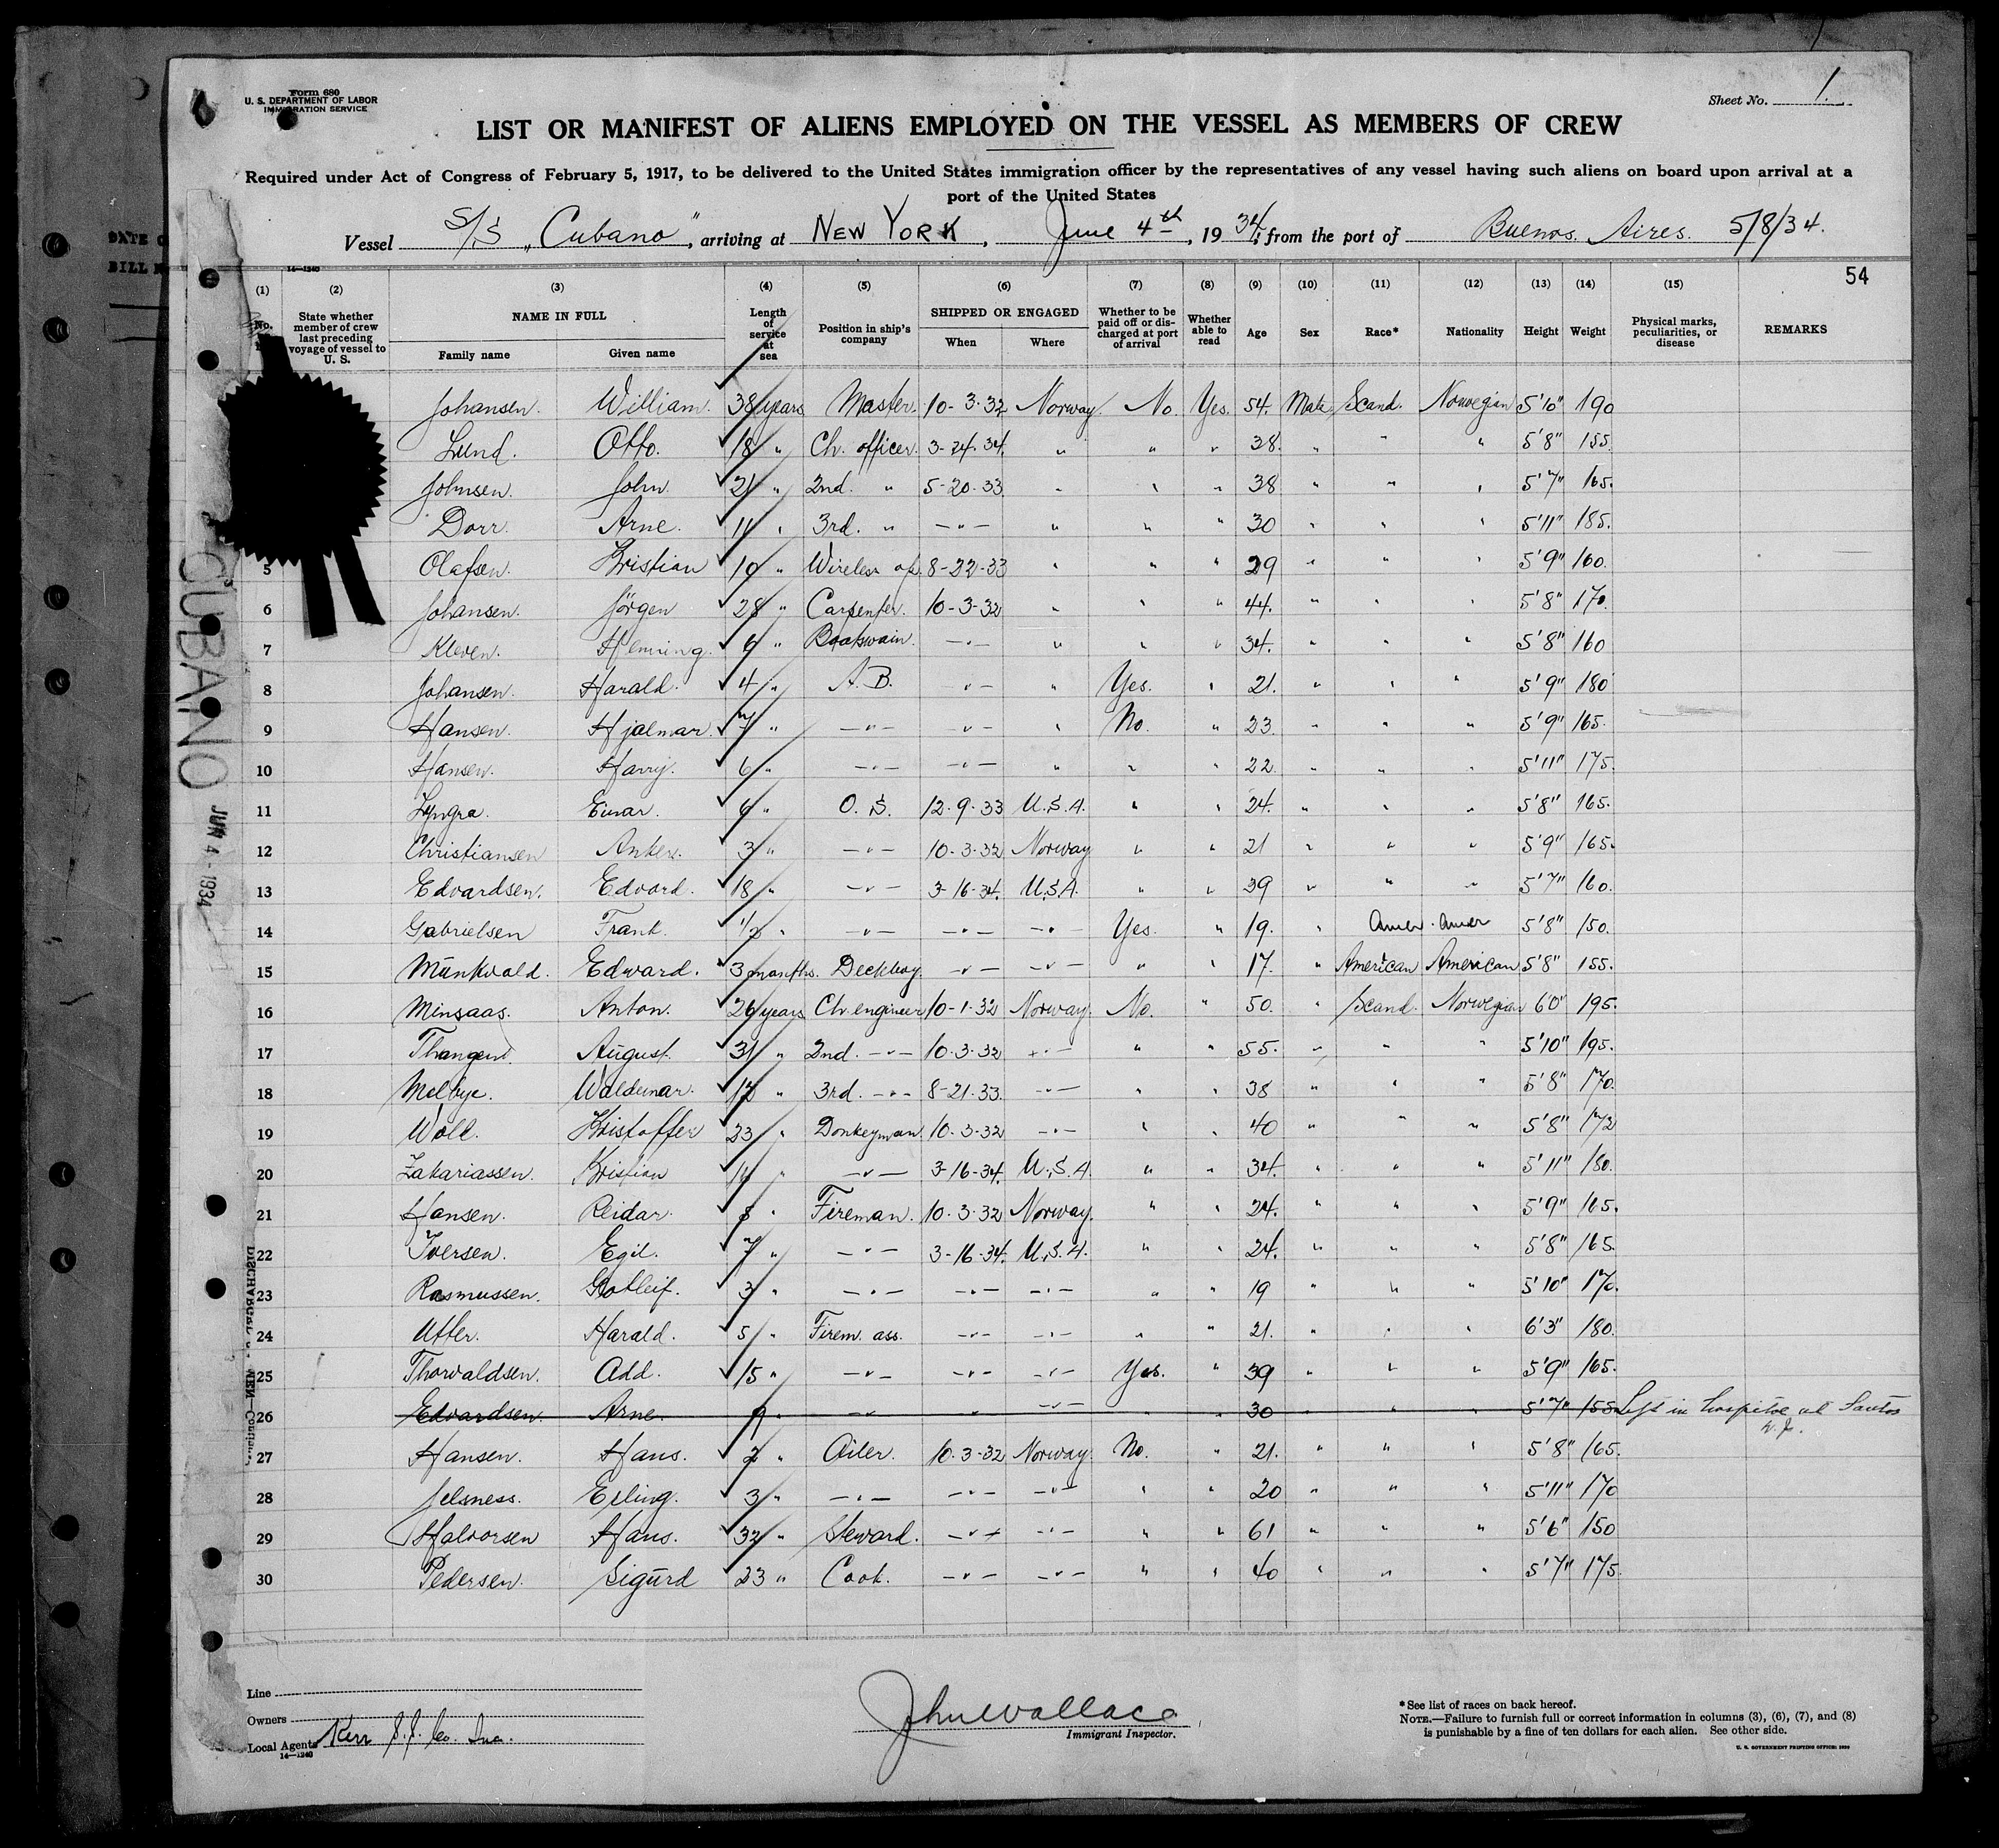 Form 680
U. S. DEPARTMENT OF LABOR
IMMIGRATION SERVICE
Sheet No. 1.
LIST OR MANIFEST OF ALIENS EMPLOYED ON THE VESSEL AS MEMBERS OF CREW
Required under Act of Congress of February 5, 1917, to be delivered to the United States immigration officer by the representatives of any vessel having such aliens on board upon arrival at a
port of the United States
Vessel S/S „Cubano", arriving at NEW YORK, June 4th, 1934, from the port of Buenos Aires. 5/8/34.
14—1240
54
(1) (2) (3) (4) (5) (6) (7) (8) (9) (10) (11) (12) (13) (14) (15)
No. State whether member of crew last preceding voyage of vessel to U. S. NAME IN FULL Family name Given name Length of service at sea Position in ship's company SHIPPED OR ENGAGED When Where Whether to be paid off or discharged at port of arrival Whether able to read Age Sex Race* Nationality Height Weight Physical marks, peculiarities, or disease REMARKS
Johansen. William. 38 years Master. 10-3-32 Norway. No. Yes. 54. Male Scand. Norwegian 5'10" 190
Lund. Otto. 18 " Ch. officer. 3-24-34. " " " 38. " " " 5'8" 155.
Johnsen. John. 21 " 2nd. " 5-20-33 " " " 38 " " " 5'7" 165.
Dorr. Arne. 11 " 3rd. " -"- " " " 30 " " " 5'11" 185.
5 Olafsen. Kristian 10 " Wireless op. 8-22-33 " " " 29 " " " 5'9" 160.
6 Johansen. Jörgen 28 " Carpenter. 10-3-32 " " " 44. " " " 5'8" 170.
7 Kleven. Henning. 6 " Boatswain. -"- " " " 34. " " " 5'8" 160
8 Johansen. Harald. 4 " A.B. -"- " Yes. " 21. " " " 5'9" 180
9 Hansen. Hjalmar. 7 " -"- -"- " No. " 23. " " " 5'9" 165.
10 Hansen. Harry. 6 " -"- -"- " " " 22. " " " 5'11" 175.
11 Einar. 6 " O.S. 12-9-33 U.S.A. " " 24. " " " 5'8" 165.
12 Christiansen 3 " -"- 10-3-32 Norway " " 21 " " " 5'9" 165.
13 Edvardsen. Edvard. 18 " -"- 3-16-34. U.S.A. " " 39 " " " 5'7" 160.
14 Gabrielsen Frank. 1/2 " -"- -"- -"- Yes. " 19. " Amer. Amer 5'8" 150.
15 Munkvald. Edward. 3 months. Deckboy. -"- -"- " " 17. " American American 5'8" 155.
16 Minsaas. Anton. 26 years Ch. engineer 10-1-32 Norway. No. " 50. " Scand. Norwegian 6'0" 195.
17 August. 31 " 2nd. -"- 10-3-32 -"- " " 55. " " " 5'10" 195.
18 Melbye. Waldemar. 12 " 3rd. -"- 8-21-33. -"- " " 38 " " " 5'8" 170.
19 Woll. Kristoffer 23 " Donkeyman 10-3-32 -"- " " 40 " " " 5'8" 172
20 Zakariassen. Kristian " -"- 3-16-34. U.S.A. " " 34. " " " 5'11" 180.
21 Hansen. Reidar. " Fireman. 10-3-32 Norway. " " 24. " " " 5'9" 165.
22 Iversen. Egil. 7 " -"- 3-16-34. U.S.A. " " 24. " " " 5'8" 165.
23 Rasmussen. 3 " -"- -"- -"- " " 19 " " " 5'10" 170.
24 Harald. 5 " Firem. ass. -"- -"- " " 21. " " " 6'3" 180.
25 Thorvaldsen. Add. 15 " -"- -"- -"- Yes. " 39 " " " 5'9" 165.
26 Edvardsen. Arne. 9 " -"- " -"- " " 30 " " " 5'7" 155 Left in hospital at Santos
W.J.
27 Hansen. Hans. 2 " Oiler. 10-3-32 Norway. No. " 21. " " " 5'8" 165.
28 Jelsness. Erling. 3 " -"- -"- -"- " " 20 " " " 5'11" 170
29 Halvorsen Hans. 32 " Steward. -"- -"- " " 61 " " " 5'6" 150
30 Pedersen. Sigurd 23 " Cook. -"- -"- " " 40 " " " 5'7" 175.
CUBANO
JUN 4 - 1934
Line
Owners
Local Agents Kerr S.S. Co. Inc.
14—1240
John Wallace
Immigrant Inspector.
*See list of races on back hereof.
NOTE.—Failure to furnish full or correct information in columns (3), (6), (7), and (8)
is punishable by a fine of ten dollars for each alien. See other side.
U. S. GOVERNMENT PRINTING OFFICE: